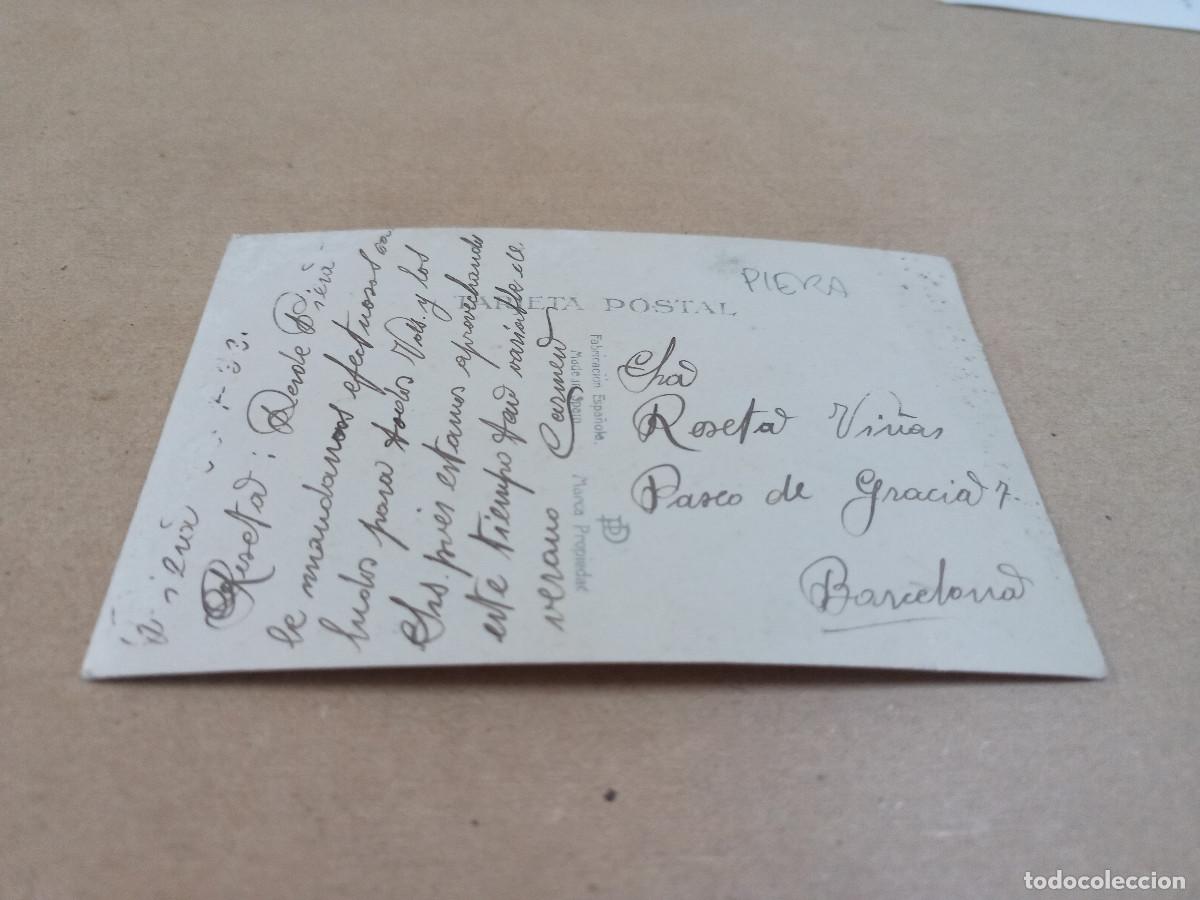 Piera
Roseta: Desde Piera
le mandamos efectuosos sa
ludos para todos Vds. y los
Chs. pues estamos aprovechando
este tiempo tan variable de
verano Carmen
PIERA
TARJETA POSTAL
Fabricación Española.
Made in Spain
Marca Propiedad
Sra
Roseta Viñas
Paseo de Gracia 7.
Barcelona
todocoleccion